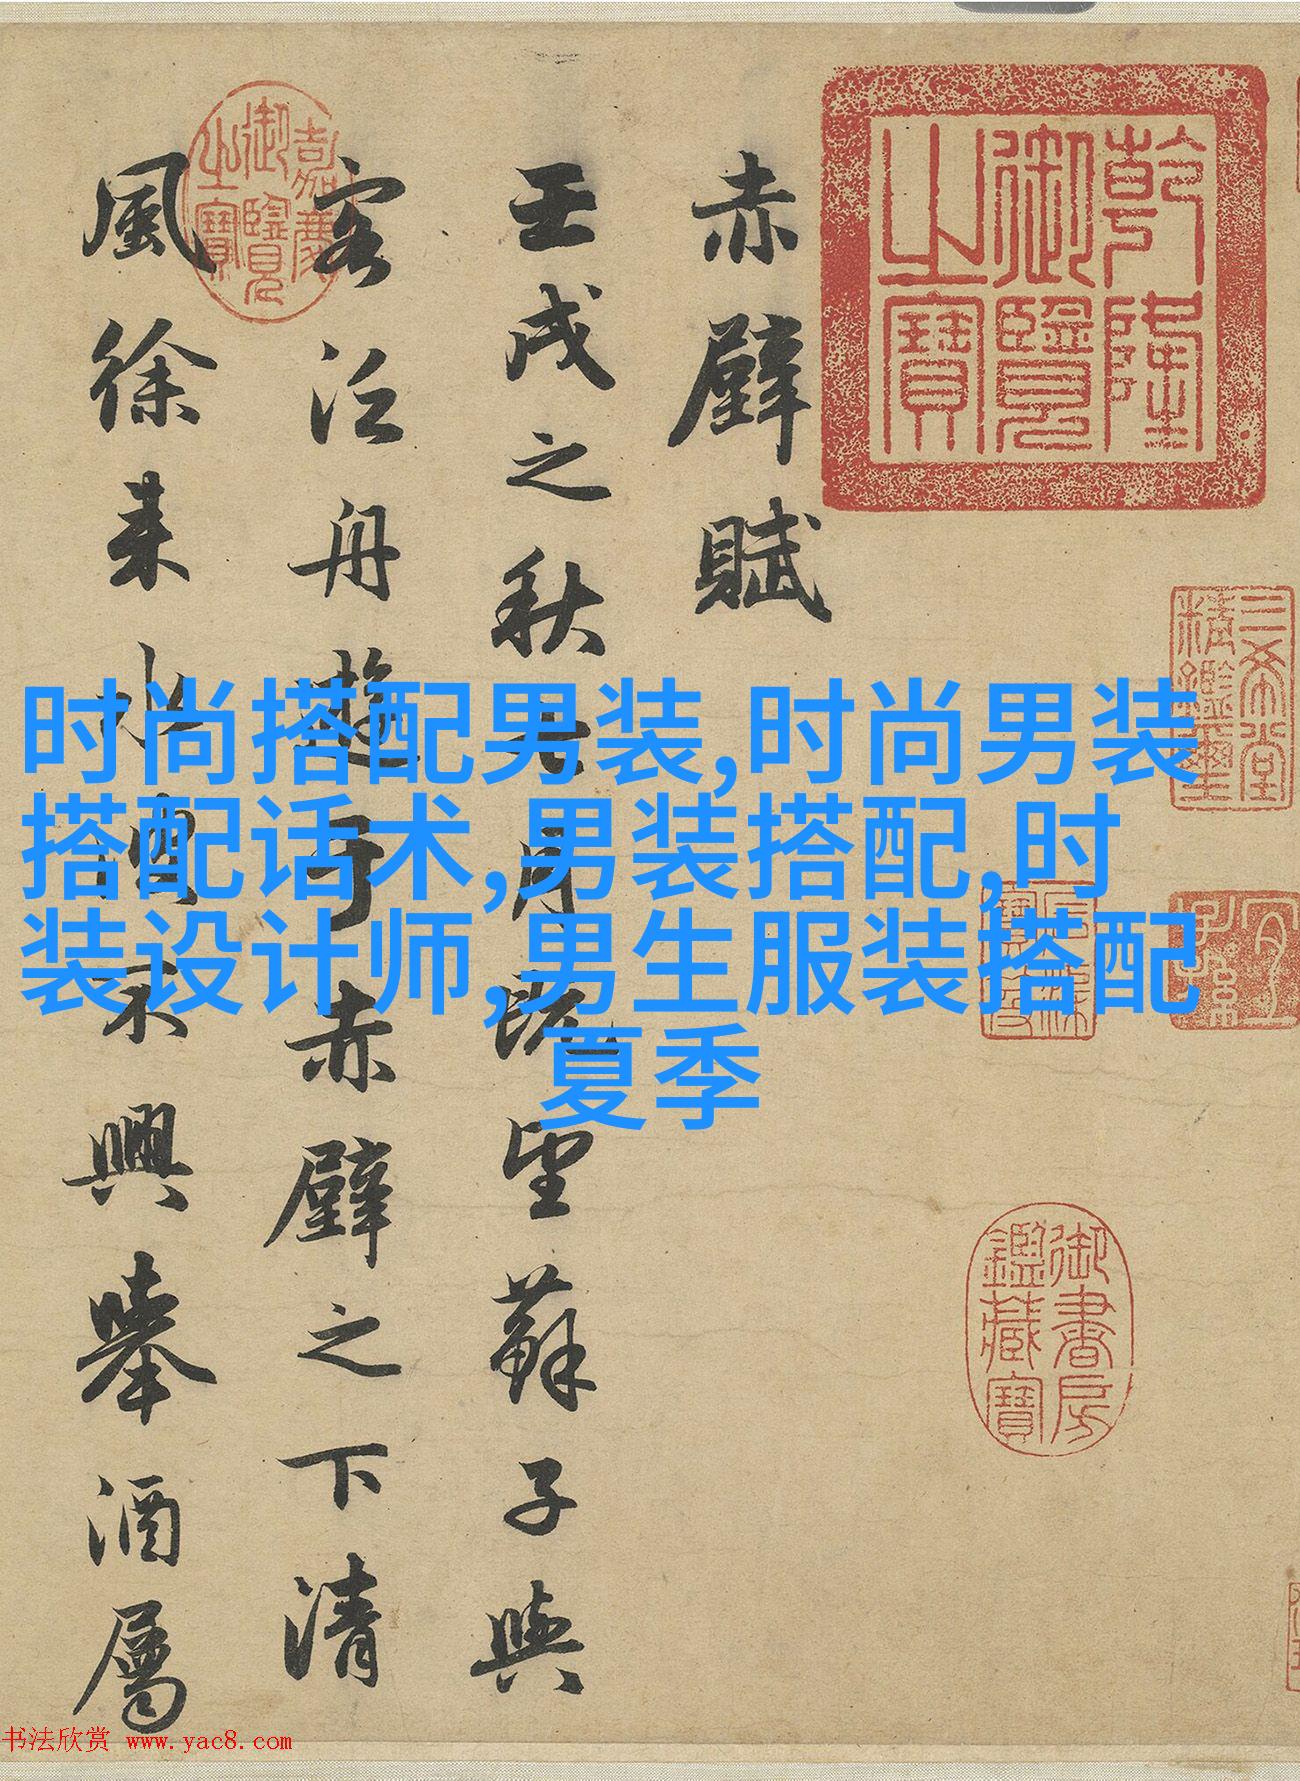 乾隆御覽之寶
三希堂精鑑璽
宜子孫
石渠寶笈
御書房鑑藏寶
赤壁賦
壬戌之秋七月既望蘇子與
客泛舟遊于赤壁之下清
風徐来水波不興舉酒屬
嘉慶御覽之寶
时尚搭配男装,时尚男装
搭配话术,男装搭配,时
装设计师,男生服装搭配
夏季
书法欣赏 www.yac8.com